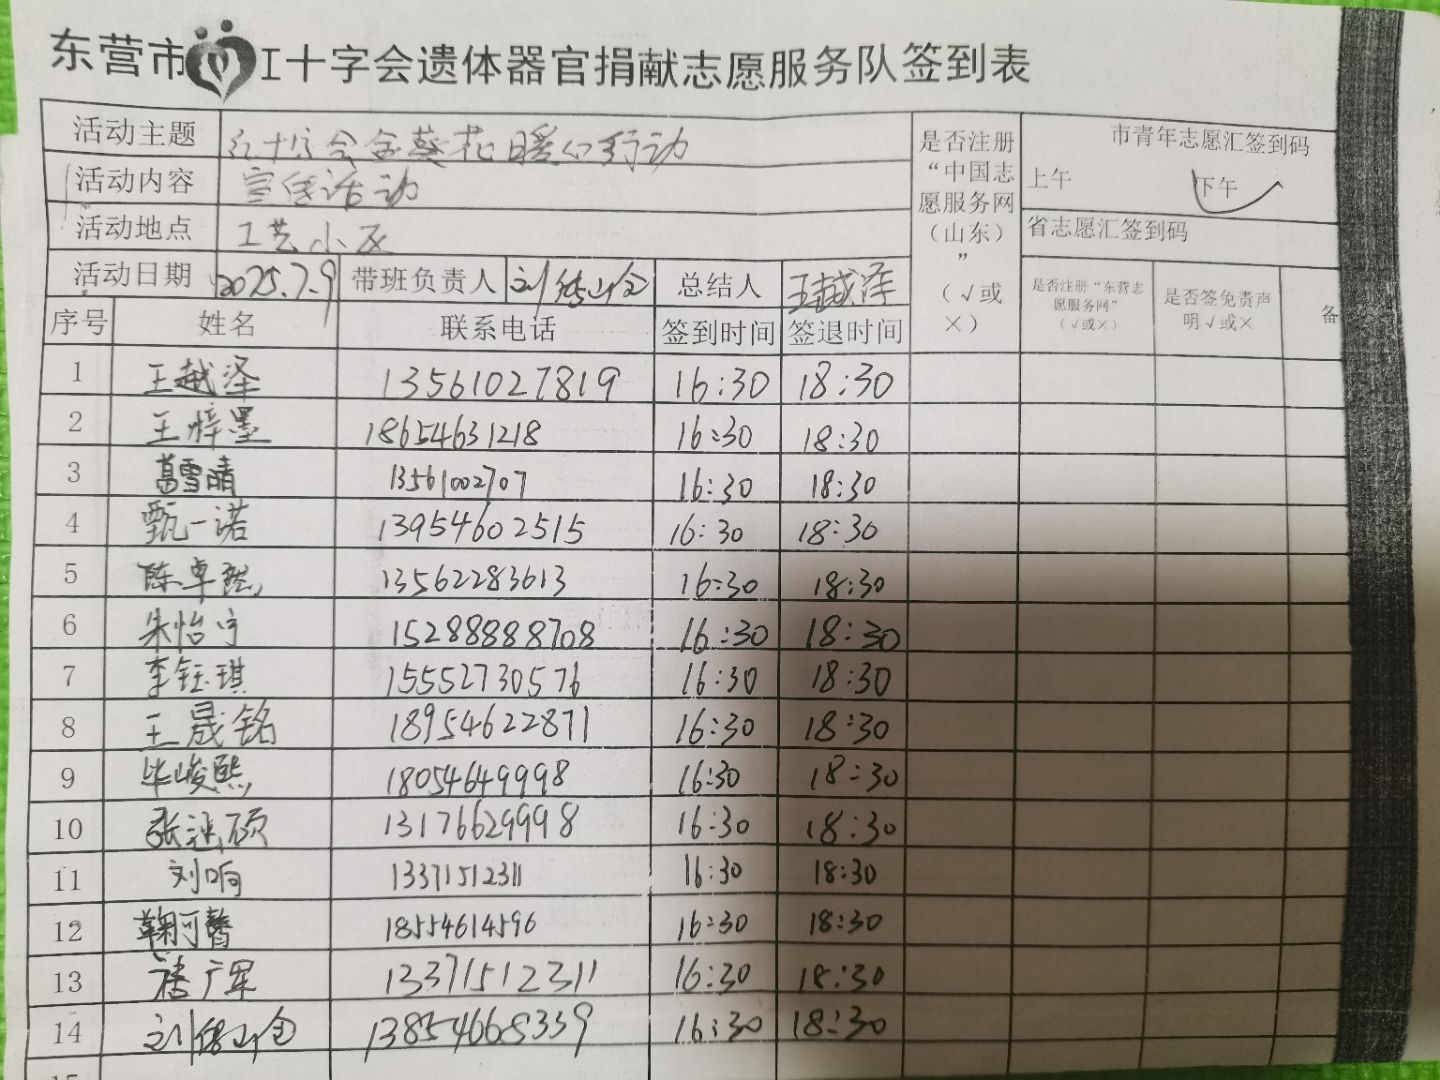 东营市红十字会遗体器官捐献志愿服务队签到表
活动主题 红十字会金葵花暖心行动
活动内容 宣传活动
活动地点 工艺小区
活动日期 2025.7.9 带班负责人 总结人 王越泽
是否注册“中国志愿服务网（山东）”（√或×）
市青年志愿汇签到码
上午 下午 √
省志愿汇签到码
是否注册“东营志愿服务网”（√或×） 是否签免责声明√或× 备
序号 姓名 联系电话 签到时间 签退时间
1 王越泽 13561027819 16:30 18:30
2 王梓墨 18654631218 16:30 18:30
3 葛雪晴 13561002707 16:30 18:30
4 甄一诺 13954602515 16:30 18:30
5 陈卓 13562283613 16:30 18:30
6 朱怡宁 15288888708 16:30 18:30
7 李钰琪 15552730576 16:30 18:30
8 王晟铭 18954622871 16:30 18:30
9 毕峻熙 18054649998 16:30 18:30
10 张 硕 13176629998 16:30 18:30
11 刘响 13371512311 16:30 18:30
12 鞠可馨 18554614596 16:30 18:30
13 广军 13371512311 16:30 18:30
14 刘 13854668339 16:30 18:30
15